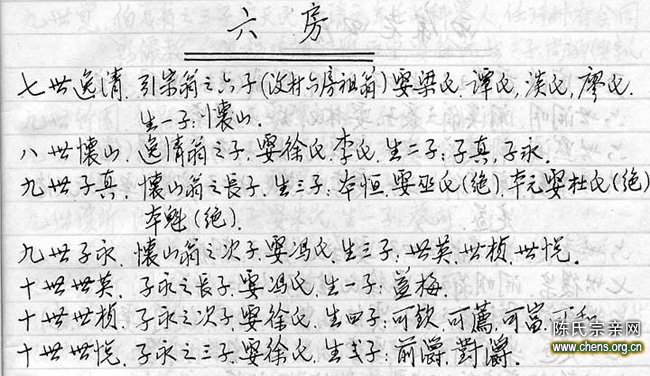 六房
七世逸清.引宗翁之六子(汝村六房祖翁)娶梁氏.譚氏,淡氏,廖氏.
生一子:懷山.
八世懷山.逸清翁之子,娶徐氏.李氏,生二子:子真,子永.
九世子真.懷山翁之長子.生三子:本恒.娶巫氏(绝).本元娶杜氏(绝)
本魁(绝).
九世子永.懷山翁之次子.娶冯氏.生三子:世英.世楨.世悦.
十世世英.子永之長子.娶冯氏.生一子:益梅.
十世世楨.子永之次子.娶徐氏.生四子:可欽.可薦.可富.可和
十世世悦.子永之三子.娶徐氏.生弍子:前爵.對爵.
陈氏宗亲网
www.chens.org.cn